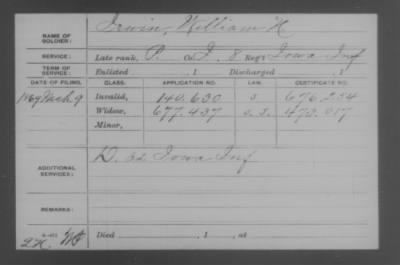 NAME OF SOLDIER: Irwin, William H
SERVICE: Late rank, P. Co. I, 8 Reg't Iowa Inf
TERM OF SERVICE: Enlisted , 1 Discharged , 1
DATE OF FILING. CLASS. APPLICATION NO. LAW. CERTIFICATE NO.
1869 Mch. 9 Invalid, 140.630 676.254
Widow, 677.437 473.017
Minor,
ADDITIONAL SERVICES: D. 32 Iowa Inf
REMARKS:
Died , 1 , at